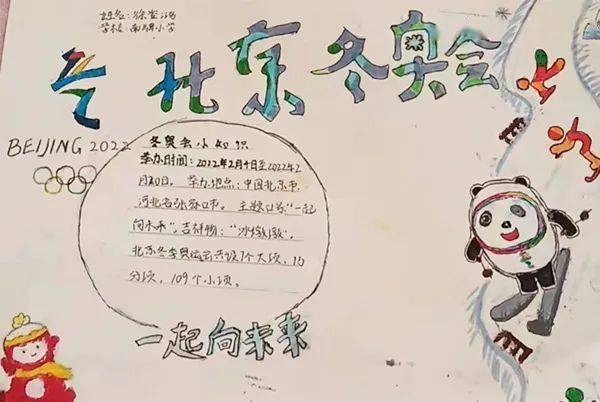 姓名：徐
学校：小学
北京冬奥会
BEIJING 2022
冬奥会小知识
举办时间：2022年2月4日至2022年2
月20日。举办地点：中国北京市
河北省张家口市。主题口号：“一起
向未来”，吉祥物：“冰墩墩”。
北京冬季奥运会共设7个大项，15
分项，109个小项。
一起向未来